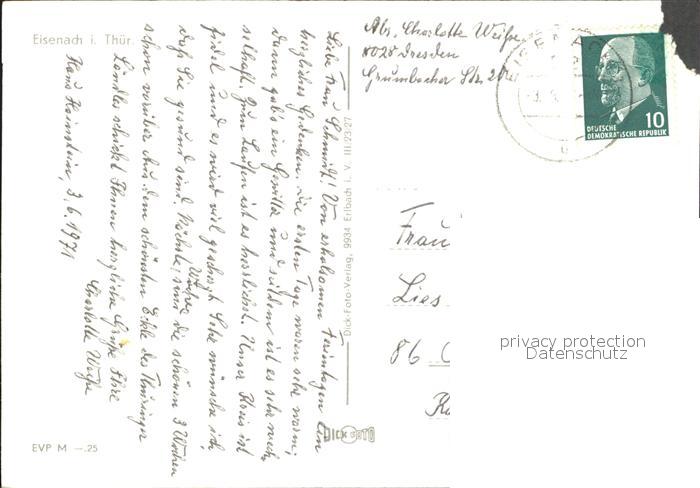 Eisenach i. Thür.
Liebe Frau Schmidt! Von erholsamen Ferientagen ein
herzliches Gedenken. Die ersten Tage waren sehr warm,
dann gab's ein Gewitter und seitdem ist es sehr wech-
selhaft. Zum Laufen ist es herrlichst. Unser Kreis ist
fidel und es wird viel geschafft. Sehr wünsche ich
daß Sie gesund sind. Nächste Woche sind die schönen 3 Wochen
schon vorüber. Aus dem schönsten Eckle des Thüringer
Ländles schickt Ihnen herzliche Grüße Ihre
Charlotte Weiße
Haus Hainstein, 3.6.1971
EVP M —.25
Dick-Foto-Verlag, 9934 Erlbach i. V. III/23/27
DICK FOTO
Abs. Charlotte Weiße
8028 Dresden
Grumbacher Str.
10
DEUTSCHE
DEMOKRATISCHE REPUBLIK
Frau
Lies
86
privacy protection
Datenschutz